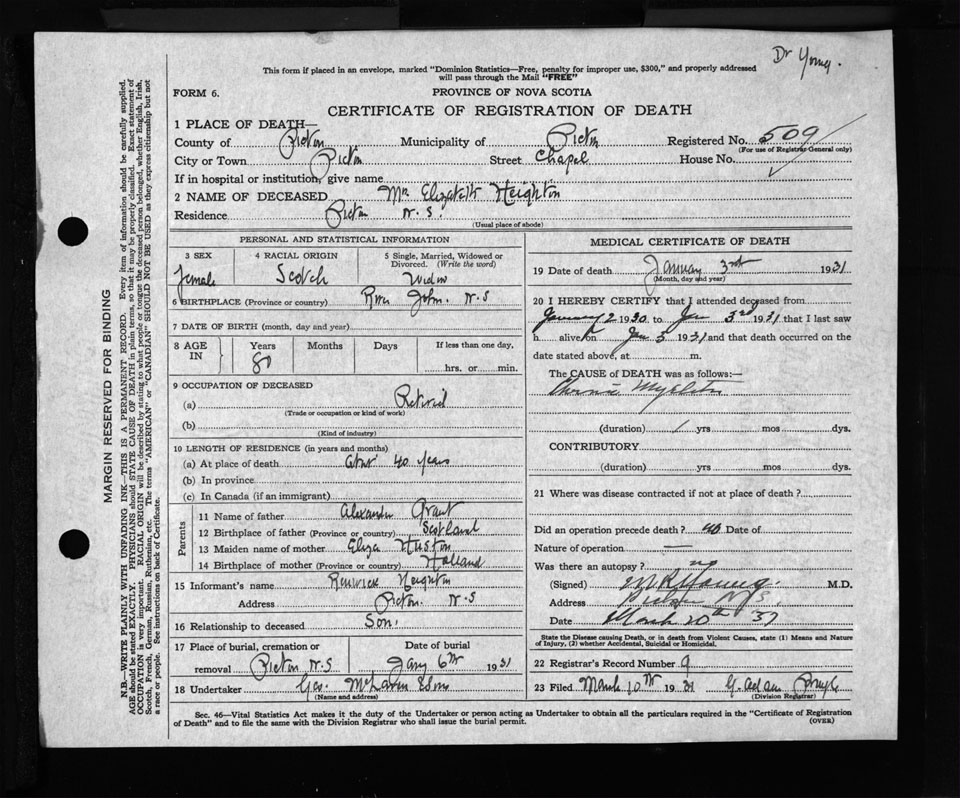 Dr Young.
This form if placed in an envelope, marked "Dominion Statistics—Free, penalty for improper use, $300," and properly addressed
will pass through the Mail "FREE"
FORM 6.
PROVINCE OF NOVA SCOTIA
CERTIFICATE OF REGISTRATION OF DEATH
1 PLACE OF DEATH—
County of Pictou Municipality of Pictou Registered No. 509
(For use of Registrar General only)
City or Town Pictou Street Chapel House No.
If in hospital or institution, give name
2 NAME OF DECEASED Mrs Elizabeth Heighton
Residence Pictou N.S.
(Usual place of abode)
PERSONAL AND STATISTICAL INFORMATION
3 SEX Female
4 RACIAL ORIGIN Scotch
5 Single, Married, Widowed or Divorced. (Write the word) Widow
6 BIRTHPLACE (Province or country) River John. N.S
7 DATE OF BIRTH (month, day and year)
8 AGE IN Years 80 Months Days If less than one day, hrs. or min.
9 OCCUPATION OF DECEASED
(a) Retired
(Trade or occupation or kind of work)
(b)
(Kind of industry)
10 LENGTH OF RESIDENCE (in years and months)
(a) At place of death about 40 years
(b) In province
(c) In Canada (if an immigrant)
Parents
11 Name of father Alexander Grant
12 Birthplace of father (Province or country) Scotland
13 Maiden name of mother Eliza Huston
14 Birthplace of mother (Province or country) Holland
15 Informant's name Renwick Heighton
Address Pictou. N.S
16 Relationship to deceased Son.
17 Place of burial, cremation or removal Pictou N.S
Date of burial Jany 6th 1931
18 Undertaker Geo. McLaren & Sons
(Name and address)
MEDICAL CERTIFICATE OF DEATH
19 Date of death January 3rd 1931
(Month, day and year)
20 I HEREBY CERTIFY that I attended deceased from
January 2 1930 to Jan 3rd 1931 that I last saw
h alive on Jan 3 1931 and that death occurred on the
date stated above, at m.
The CAUSE of DEATH was as follows:—
Chronic
(duration) 1 yrs mos dys.
CONTRIBUTORY
(duration) yrs mos dys.
21 Where was disease contracted if not at place of death?
Did an operation precede death? no Date of
Nature of operation —
Was there an autopsy? no
(Signed) Young. M.D.
Address Pictou N.S.
Date March 10th 31
State the Disease causing Death, or in death from Violent Causes, state (1) Means and Nature
of Injury, (2) whether Accidental, Suicidal or Homicidal.
22 Registrar's Record Number 9
23 Filed March 10th 1931 G. Adam
(Division Registrar)
Sec. 46—Vital Statistics Act makes it the duty of the Undertaker or person acting as Undertaker to obtain all the particulars required in the "Certificate of Registration
of Death" and to file the same with the Division Registrar who shall issue the burial permit.
(OVER)
MARGIN RESERVED FOR BINDING
N.B.—WRITE PLAINLY WITH UNFADING INK—THIS IS A PERMANENT RECORD. Every item of information should be carefully supplied.
AGE should be stated EXACTLY. PHYSICIANS should STATE CAUSE OF DEATH in plain terms, so that it may be properly classified. Exact statement of
OCCUPATION is very important. RACIAL ORIGIN will be described by stating to what people or tongue the deceased person belonged, whether English, Irish,
Scotch, French, German, Russian, Ruthenian, etc. The terms "AMERICAN" or "CANADIAN" SHOULD NOT BE USED as they express citizenship but not
a race or people. See instructions on back of Certificate.